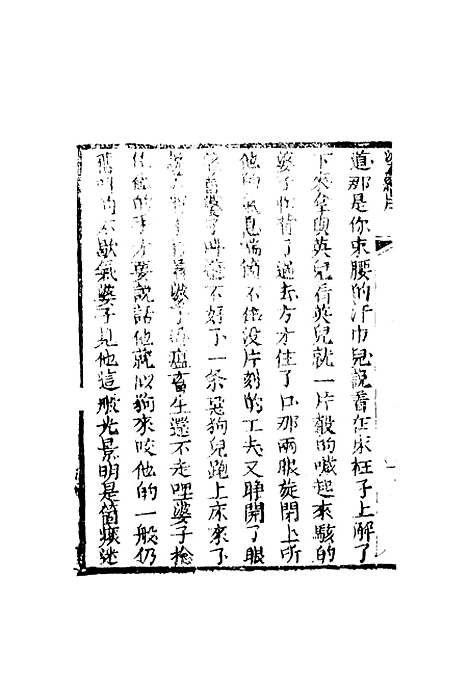 道那是你束腰的汗巾兒說着在床柱子上解了
下來拿與英兒看英兒就一片穀的喊起來駭的
婆子收着了過去方才住了口那兩眼旋閉上所
他的氣息喘個不住沒片刻的工夫又睜開了眼
着婆子哮說不好了一条惡狗兒跑上床來了
婆了瘟畜生還不走哩婆子捻
他的手才要說話他就似狗來咬他的一般仍
舊叫的不歇氣婆子見他這般光景明是箇痰迷